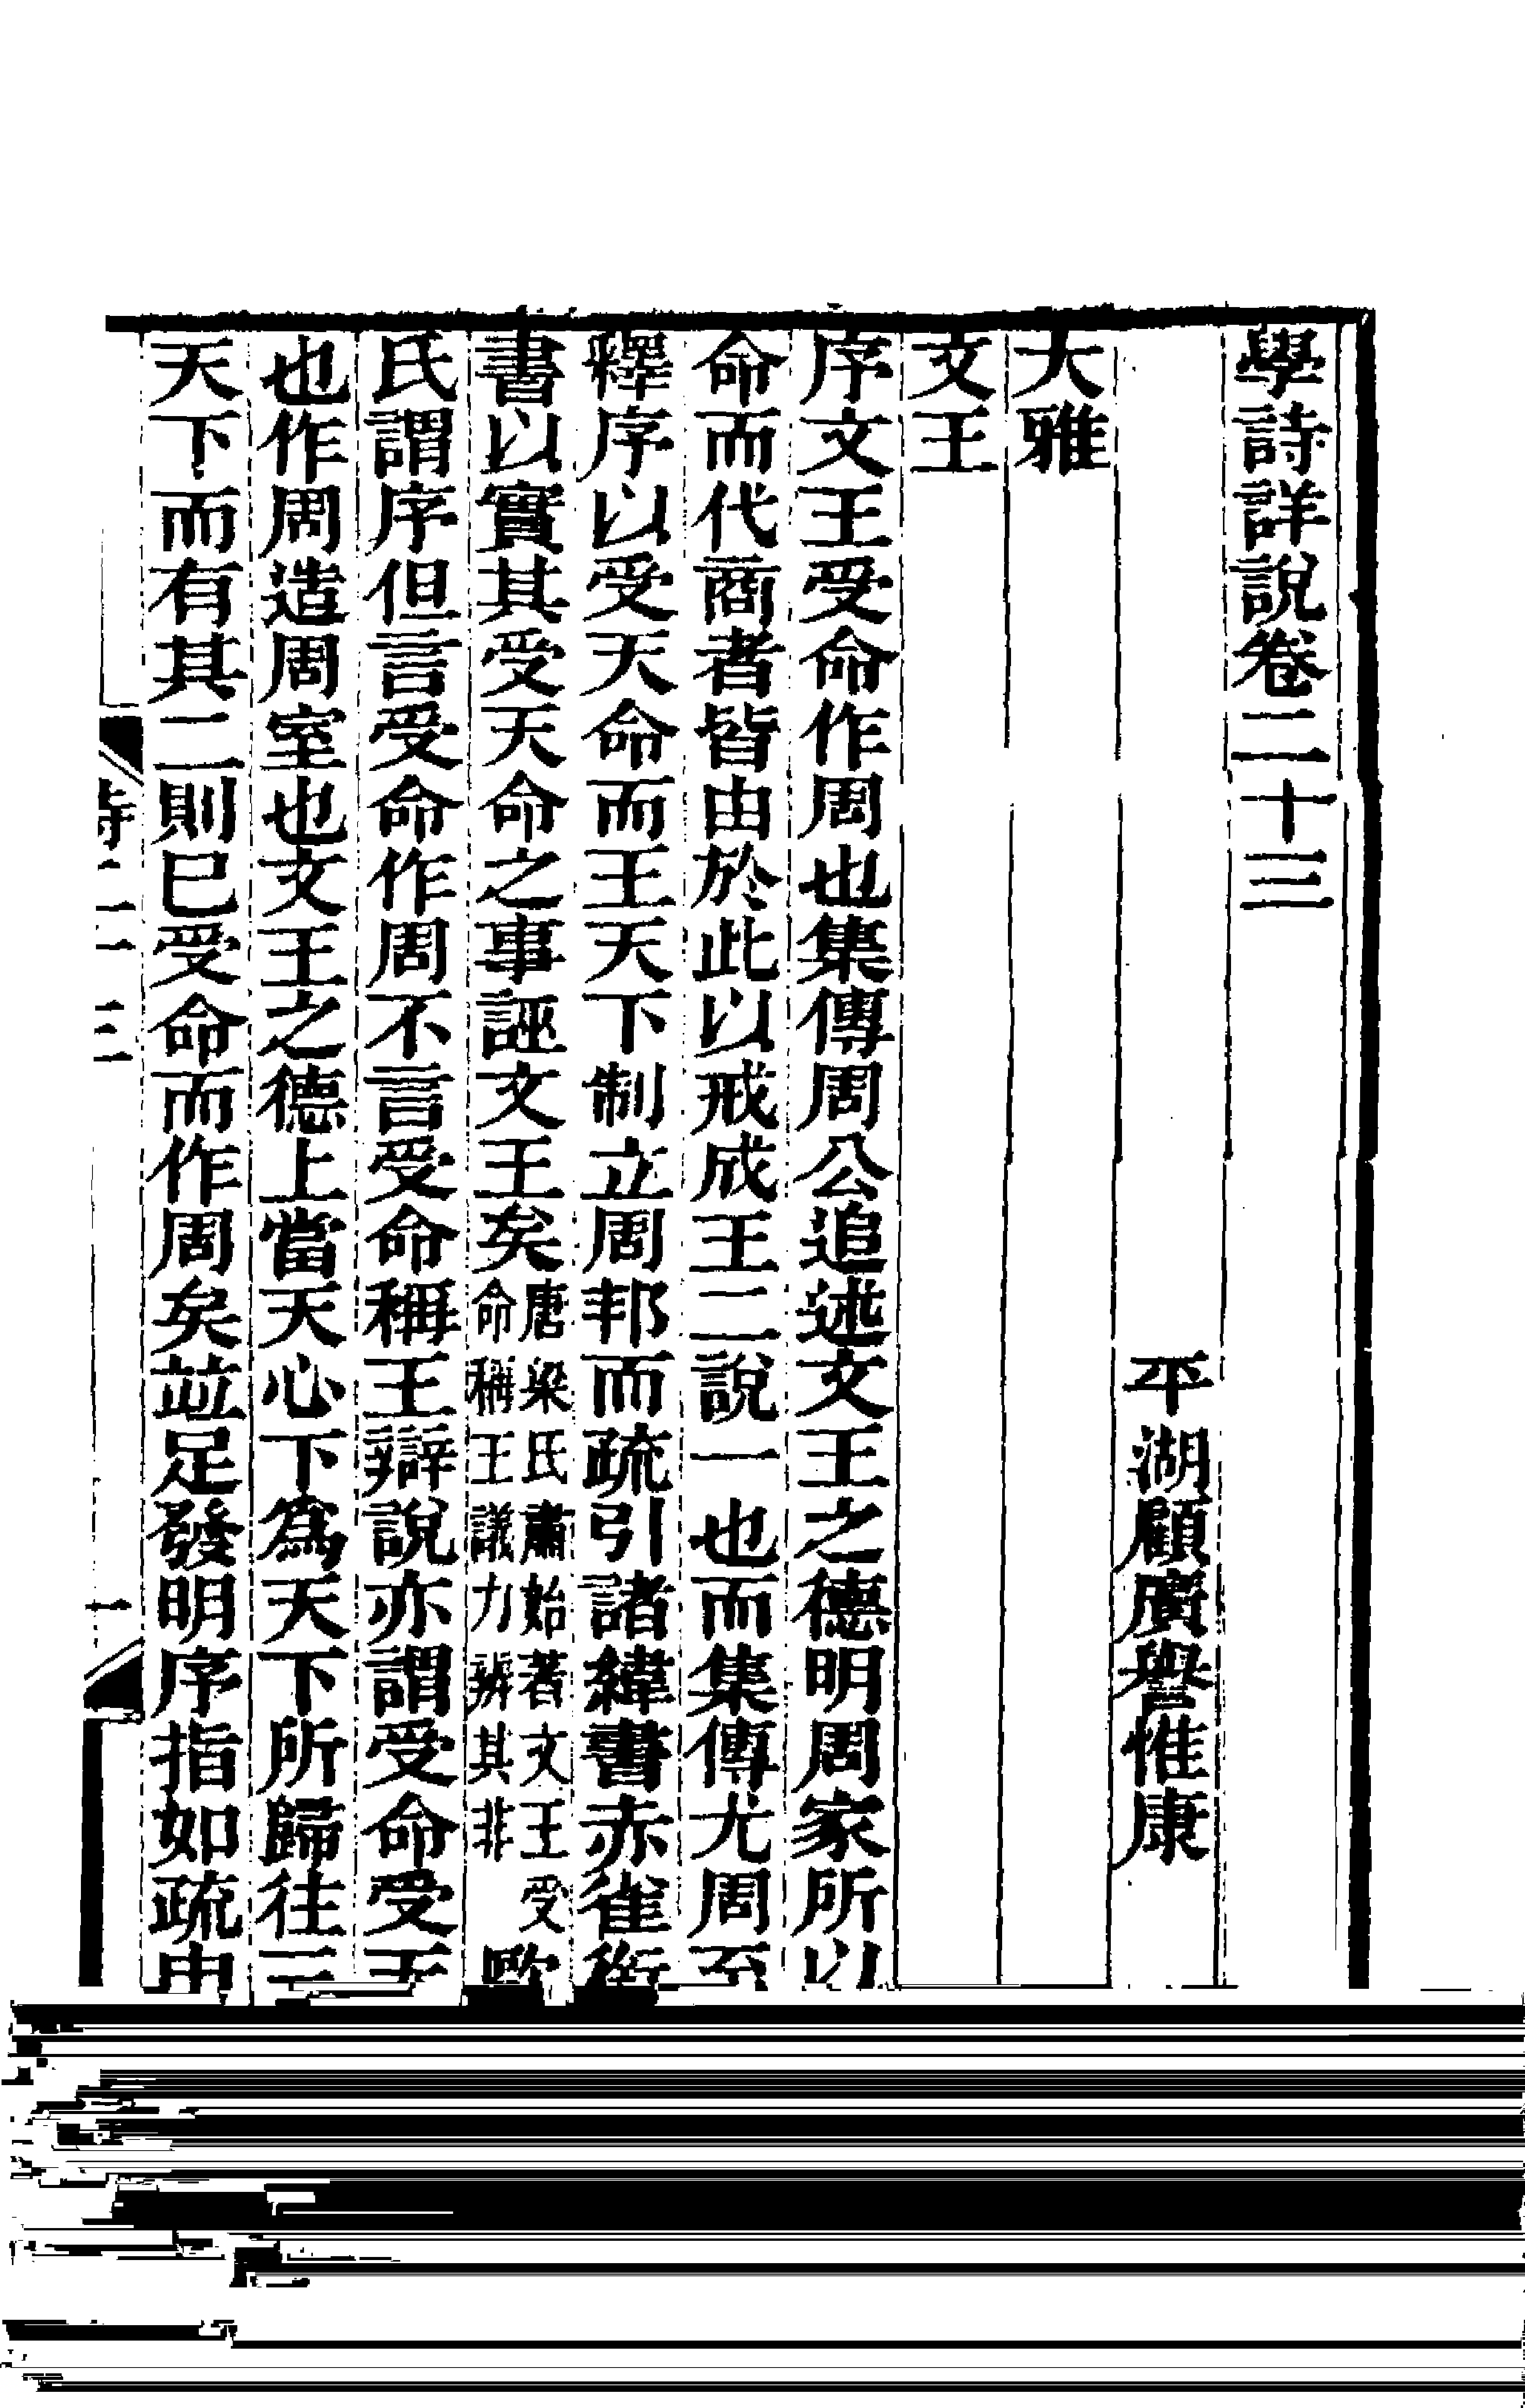 學詩詳說卷二十三
平湖顧廣譽惟康
大雅
文王
序文王受命作周也集傳周公追述文王之德明周家所以
命而代商者皆由於此以戒成王二說一也而集傳尤周至
釋序以受天命而王天下制立周邦而疏引諸緯書赤雀銜
書以實其受天命之事誣文王矣唐梁氏肅始著文王受命稱王議力辨其非歐
氏謂序但言受命作周不言受命稱王辯說亦謂受命受
也作周造周室也文王之德上當天心下爲天下所歸往三
天下而有其二則巳受命而作周矣並足發明序指如疏
詩二十三
一